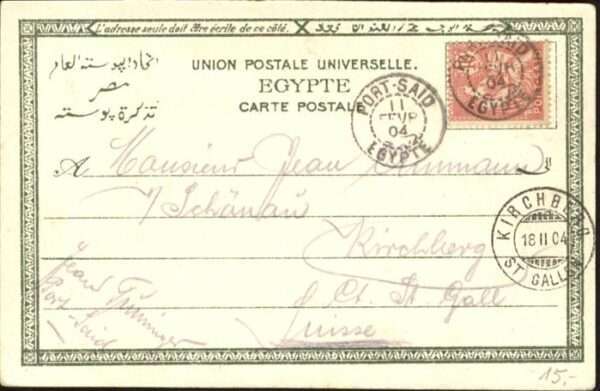 L'adresse seule doit être écrite de ce côté.
اتحاد البوسته العام
مصر
تذكرة بوسته
UNION POSTALE UNIVERSELLE.
EGYPTE
CARTE POSTALE
PORT-SAID
11
04
EGYPTE
PORT-SAID
04
EGYPTE
A Monsieur Jean
Schönau
Kirchberg
Ct. St. Gall
Suisse
KIRCHBERG
18 II 04
ST. GALLEN
Jean
Port-Said
15,-